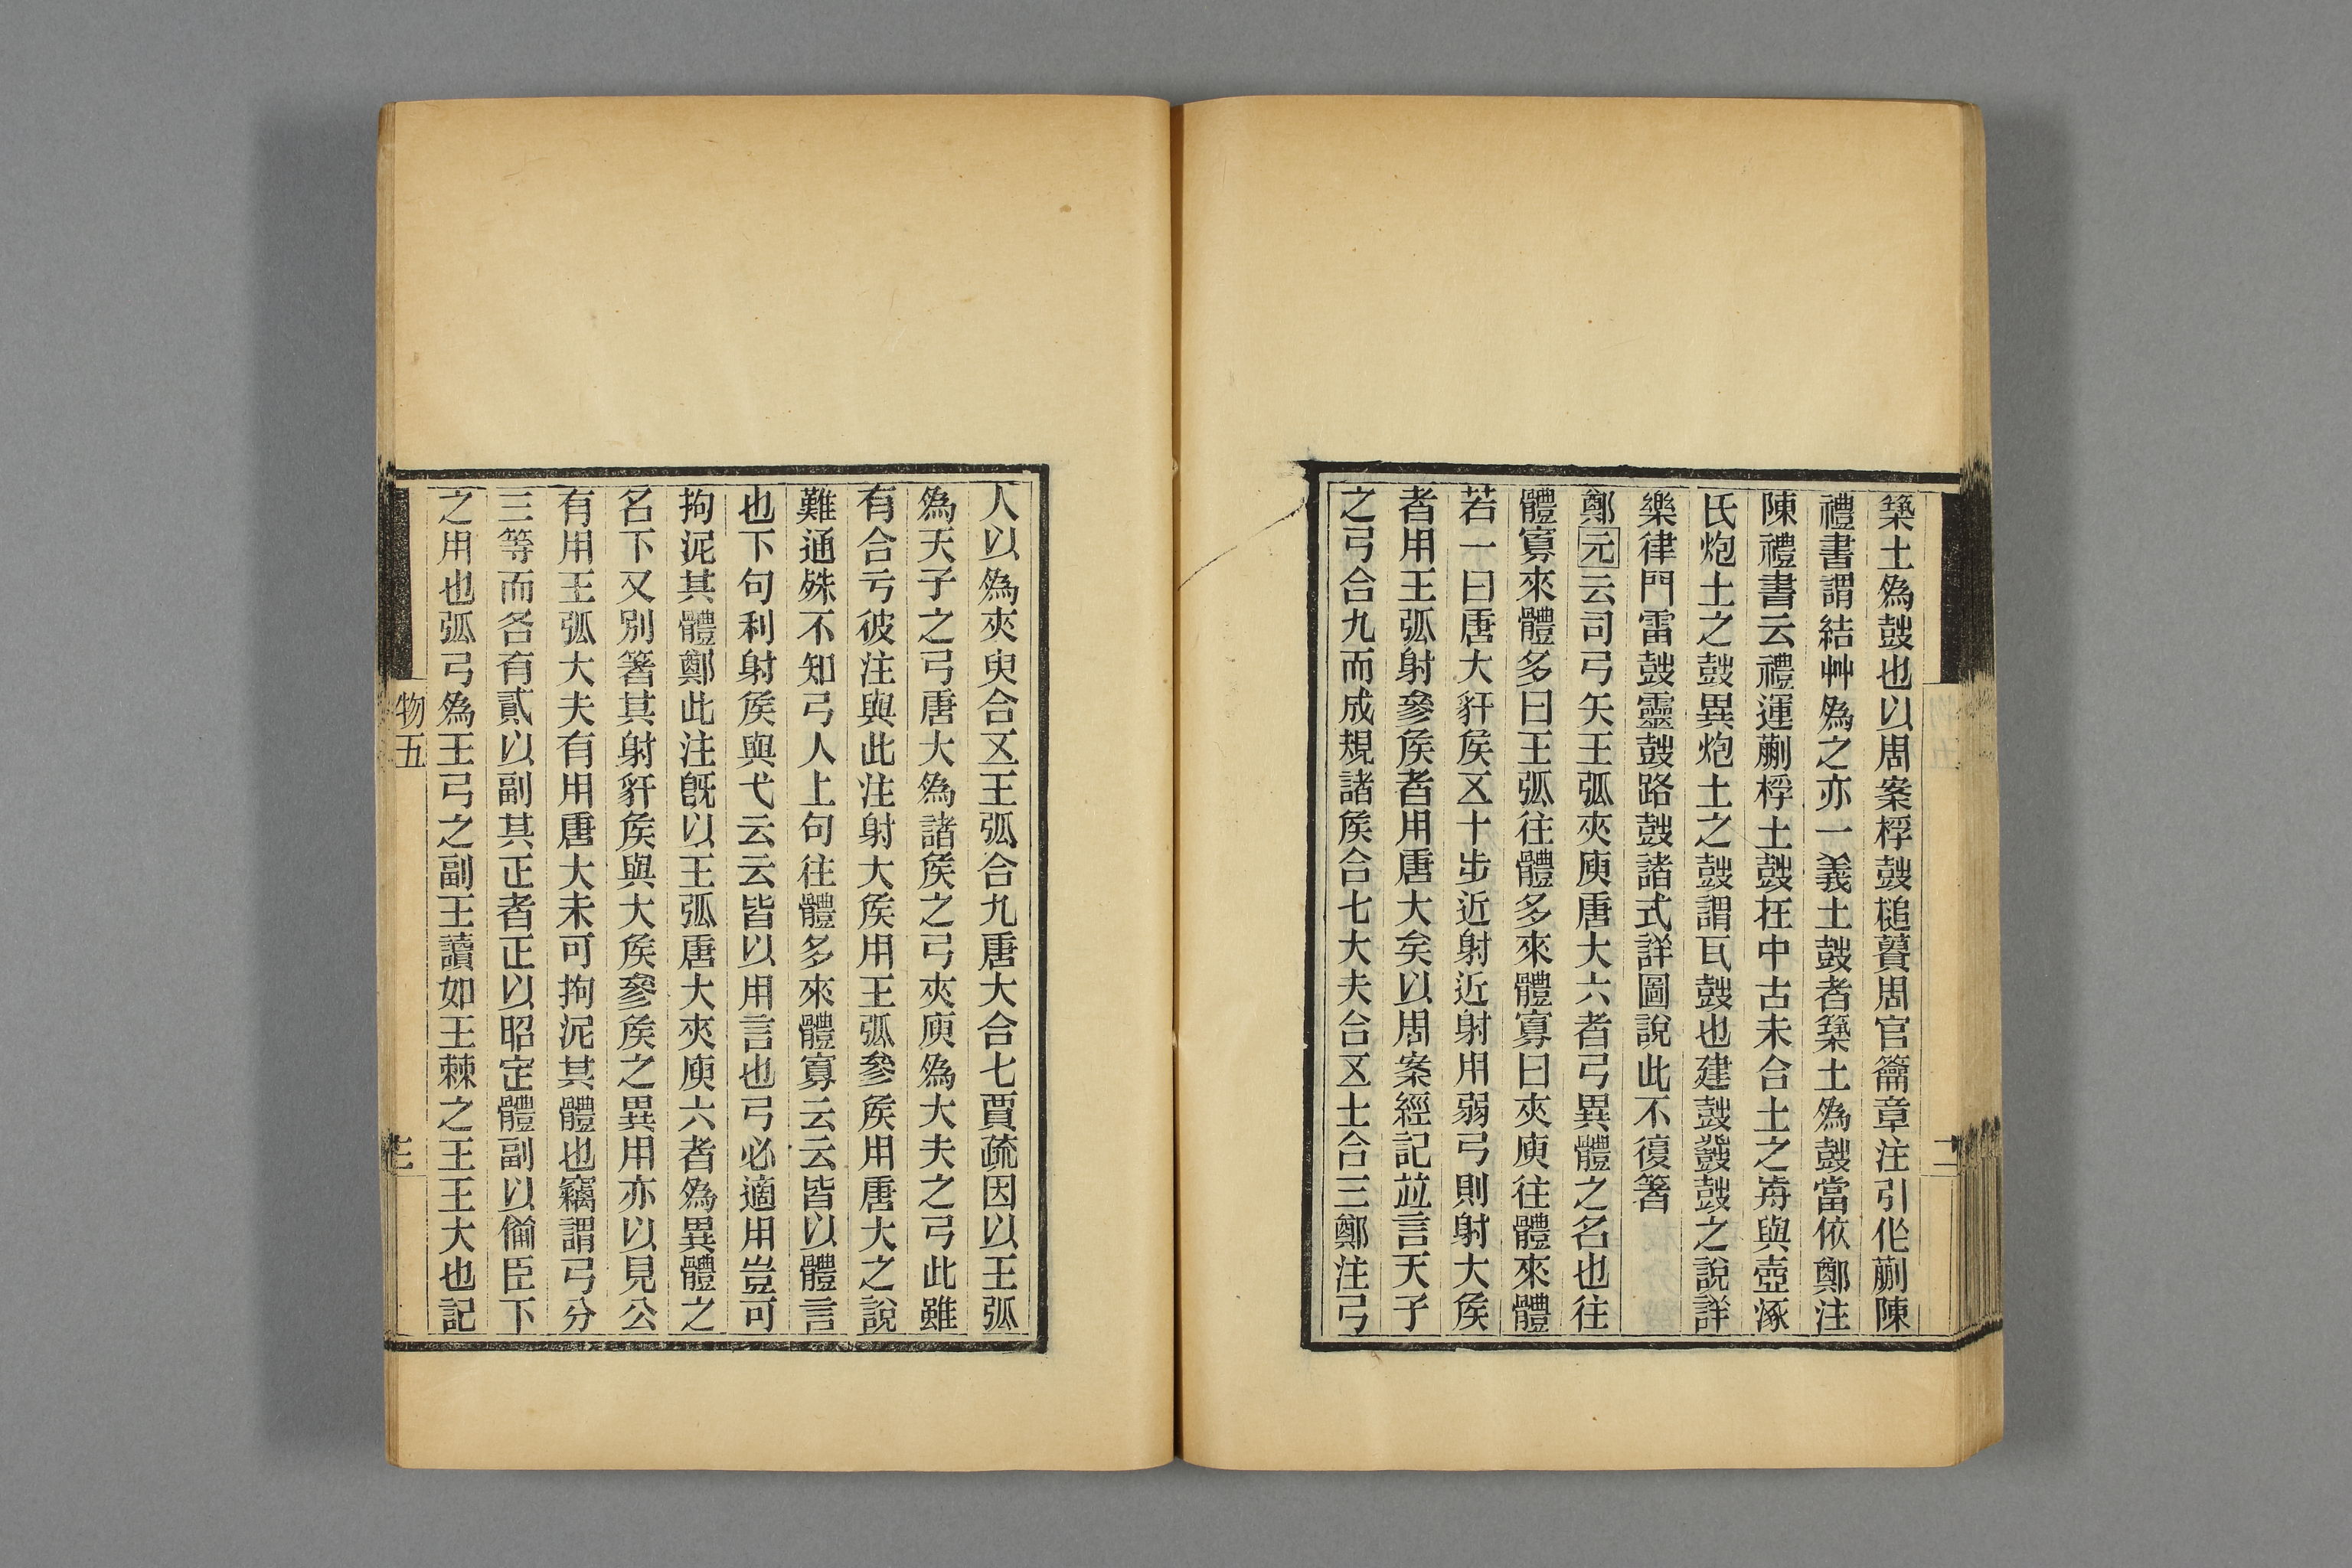 築土爲鼓也以周案桴鼓槌蕢周官籥章注引作蒯陳
禮書謂結艸爲之亦一義土鼓者築土爲鼓當依鄭注
陳禮書云禮運蒯桴土鼓在中古未合土之歬與壺涿
氏炮土之鼓異炮土之鼓謂瓦鼓也建鼓鼗鼓之說詳
樂律門雷鼓靈鼓路鼓諸式詳圖說此不復箸
鄭元云司弓矢王弧夾庾唐大六者弓異體之名也往
體寡來體多曰王弧往體多來體寡曰夾庾往體來體
若一曰唐大豻矦㐅十步近射近射用弱弓則射大矦
者用王弧射參矦者用唐大矣以周案經記竝言天子
之弓合九而成規諸矦合七大夫合㐅士合三鄭注弓
人以爲夾臾合㐅王弧合九唐大合七賈疏因以王弧
爲天子之弓唐大爲諸矦之弓夾庾爲大夫之弓此雖
有合亏彼注與此注射大矦用王弧參矦用唐大之說
難通殊不知弓人上句往體多來體寡云云皆以體言
也下句利射矦與弋云云皆以用言也弓必適用豈可
拘泥其體鄭此注旣以王弧唐大夾庾六者爲異體之
名下又別箸其射豻矦與大矦參矦之異用亦以見公
有用王弧大夫有用唐大未可拘泥其體也竊謂弓分
三等而各有貳以副其正者正以昭定體副以僃臣下
之用也弧弓爲王弓之副王讀如王棘之王王大也記
物五
三